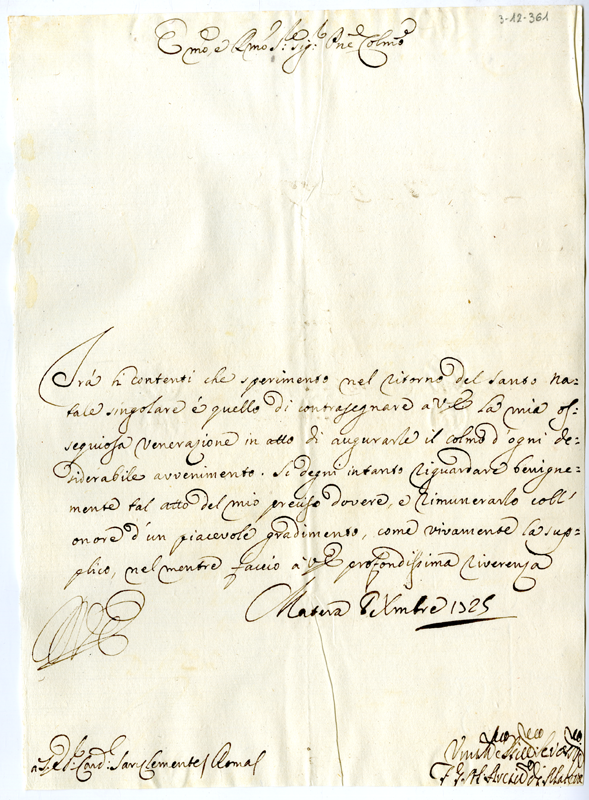 3-12-361
Emo, e Rmo Sig: Sig: Pne Colmo
Frà li contenti che sperimento nel ritorno del Santo Na=
tale singolare é quello di contrasegnare a V.E. la mia os=
sequiosa venerazione in atto di augurarle il colmo d'ogni de=
siderabile avvenimento. Si degni intanto riguardare benigne=
mente tal atto del mio preciso dovere, e rimunerarlo coll'
onore d'un piacevole gradimento, come vivamente la sup=
plico, nel mentre faccio à V.E. profondissima riverenza
Matera Xmbre 1725
Sig: Card: San Clemente / Roma /